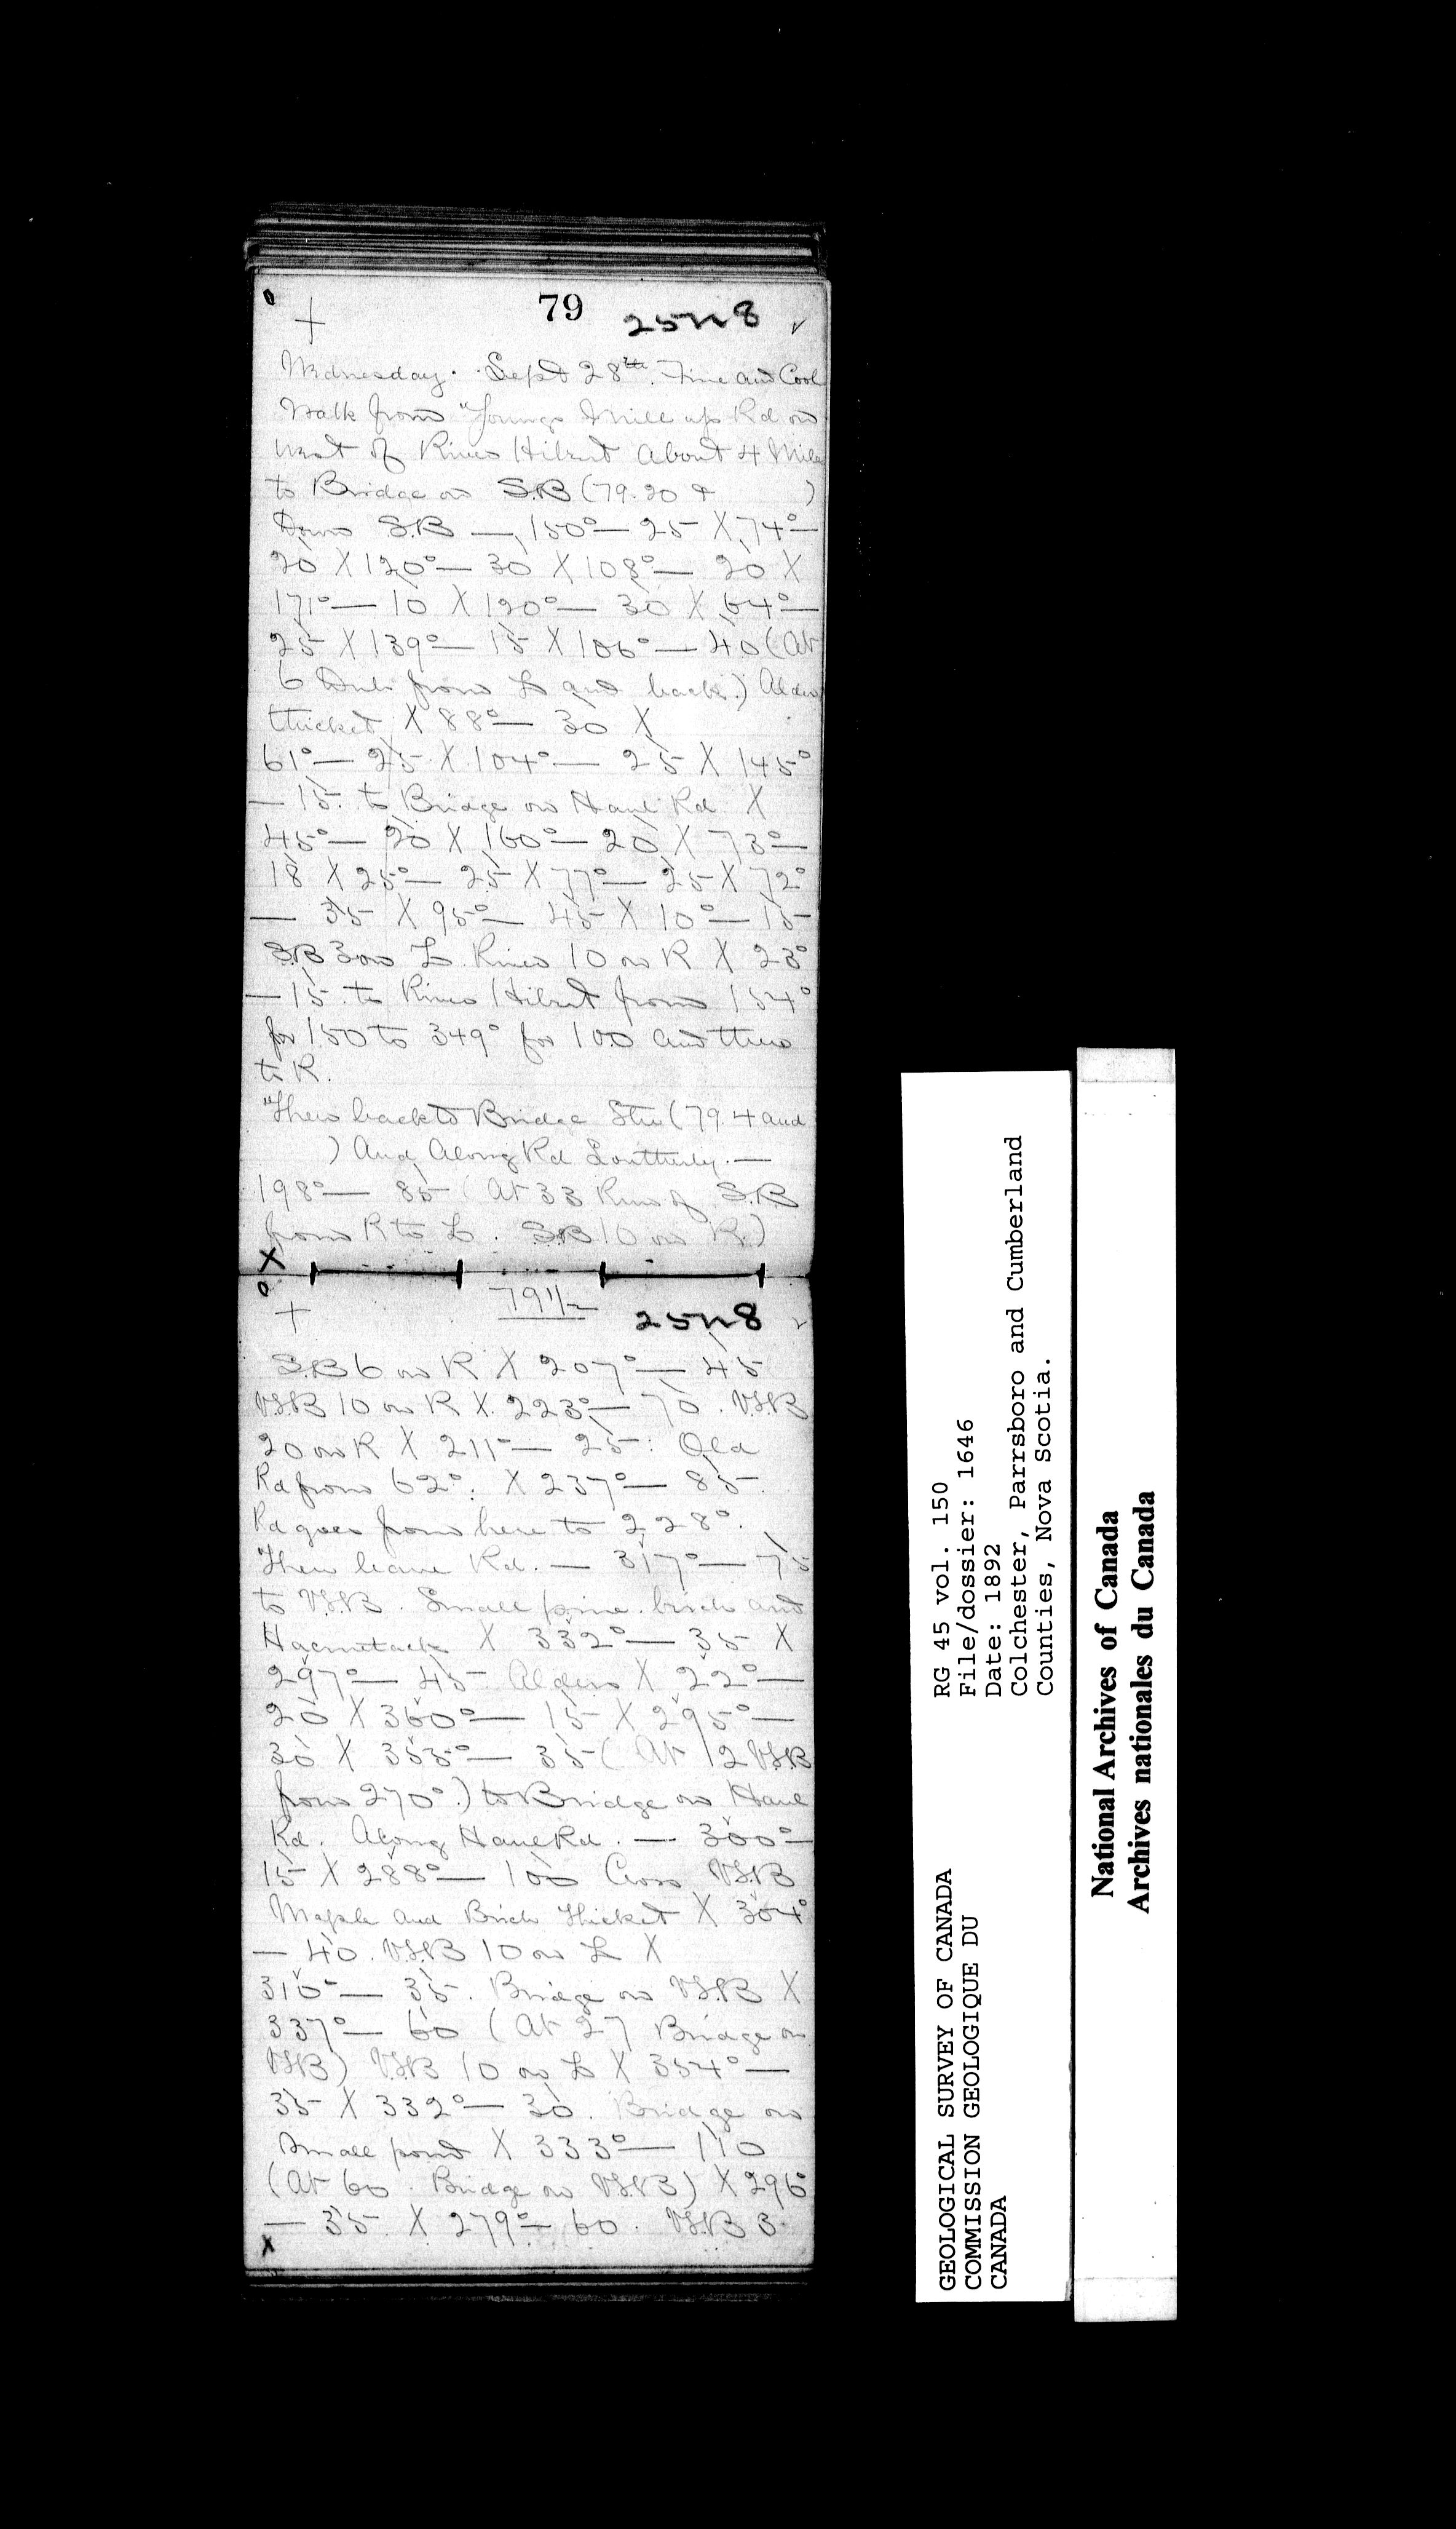 79
25N8
Wednesday. Sept 28th. Fine and Cool
Walk from Youngs Mill up Rd on
west of River Hibert about 4 Miles
to Bridge on S.B (79.20 & )
Down S.B — 150° — 25 X 74° —
20 X 120° — 30 X 108° — 20 X
171° — 10 X 120° — 30 X 64° —
25 X 139° — 15 X 106° — 40 (At
6 from L and back.) Alder
thicket X 88° — 30 X
61° — 25 X 104° — 25 X 145°
— 15. to Bridge on Haul Rd X
45° — 20 X 160° — 20 X 73° —
18 X 25° — 25 X 77° — 25 X 72°
— 35 X 95° — 45 X 10° — 15
S.B 3 on L. River 10 on R X 23°
— 15. to River Hibert from 154°
for 150 to 349° for 100 and then
to R.
Then back to Bridge Stn (79.4 and
) And Along Rd Southerly. —
198° — 85 (At 33 Run of S.B
from R to L. S.B 10 on R.)
79 1/2
25N8
S.B 6 on R X 207° — 45
V.S.B 10 on R X 223° — 70. V.S.B
20 on R X 211° — 25. Old
Rd from 62°. X 237° — 85.
Rd goes from here to 228°.
Then leave Rd. — 317° — 75
to V.S.B Small pine birch and
Hacmatack X 332° — 35 X
297° — 45 Alders X 22° —
20 X 360° — 15 X 295° —
30 X 353° — 35 (At 12 V.S.B
from 270°.) to Bridge on Haul
Rd. Along Haul Rd. — 300° —
15 X 288° — 100 Cross V.S.B
Maple and Birch thicket X 304°
— 40. V.S.B 10 on L X
310° — 35. Bridge on V.S.B X
337° — 60 (At 27 Bridge on
V.S.B) V.S.B 10 on L X 354° —
35 X 332° — 30. Bridge on
Small pond X 333° — 110
(At 60. Bridge on V.S.B) X 296°
— 35. X 279° — 60. V.S.B 3
GEOLOGICAL SURVEY OF CANADA
COMMISSION GEOLOGIQUE DU
CANADA
RG 45 vol. 150
File/dossier: 1646
Date: 1892
Colchester, Parrsboro and Cumberland
Counties, Nova Scotia.
National Archives of Canada
Archives nationales du Canada